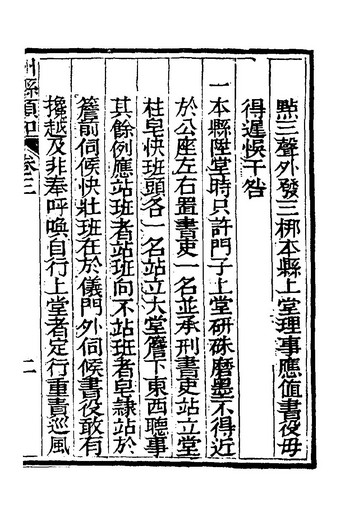 點三聲外發三梆本縣上堂理事應值書役毋
得遲悞干咎
一本縣陞堂時只許門子上堂研硃磨墨不得近
於公座左右置書吏一名並承刑書吏站立堂
柱皂快班頭各一名站立大堂簷下東西聽事
其餘例應站班者站班向不站班者皂隸站於
簷前伺候快壯班在於儀門外伺候書役敢有
攙越及非奉呼喚自行上堂者定行重責巡風
州縣須知 卷三 二